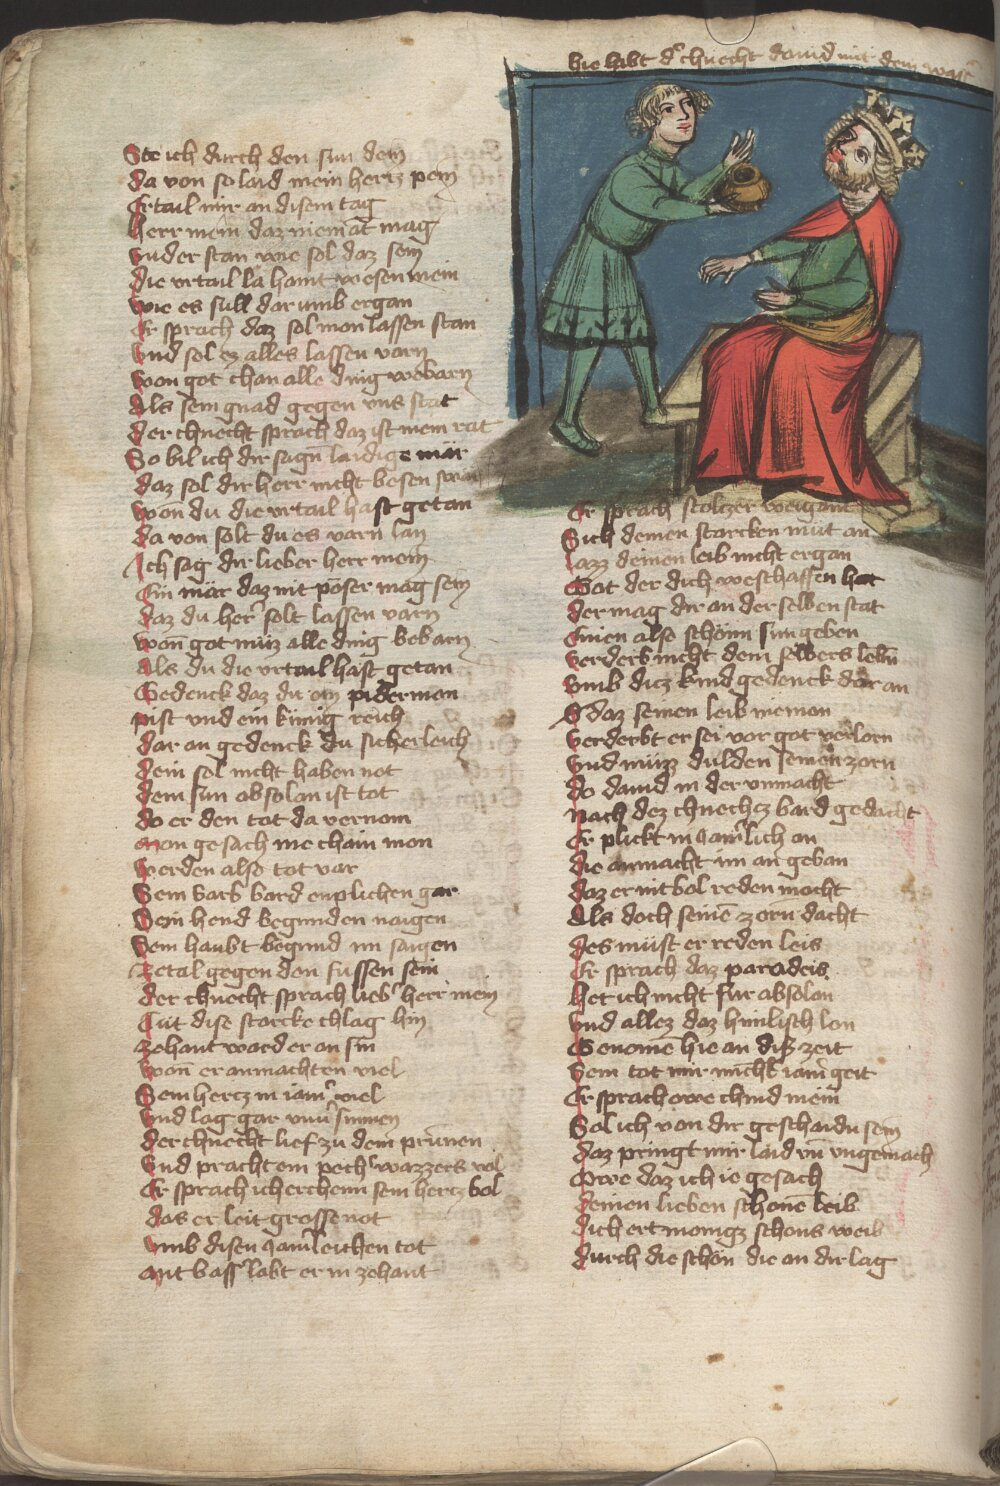 hie habt d chnecht dauid mit dem waz
Ste ich durch den sun dein
da von so laid mein hertz pein
Ertail mir an disem tag
herr mein daz niemāt mag
vnder stan wie sol daz sein
die vrtail la haint wesen mein
wie es süll dar umb ergan
Er sprach daz sol man lassen stan
vnd sol ez alles lassen varn
won got chan alle ding webarn
Als sein gnad gegen vns stat
der chnecht sprach daz ist mein rat
So bil ich dir sagn laidige mär
daz sol dir herr nicht besen swär
won du die vrtail hast getan
da von solt du es varn lan
Ich sag dir lieber herr mein
Ein mär daz nit pöser mag sein
daz du her solt lassen varn
won got müz alle ding bebarn
Als du die vrtail hast getan
Gedenck daz du ein piderman
pist vnd ein künig reich
dar an gedenck du sicherleich
dein sel nicht haben not
dein sun absolon ist tot
do er den tot da vernam
man gesach nie chain man
werden also tot var
Sein varb bard enplichen gar
Sein hend begunden naigen
Sein haubt begund im saigen
Zetal gegen den fussen sein
der chnecht sprach lieb herr mein
Tüt dise starcke chlag hin
zehant ward er an sin
won er anmachten viel
Sein hertz in iam wiel
vnd lag gar vnu sinnen
der chnecht lief zu dem prunnen
vnd pracht ein pech wazzers vol
Er sprach ich erchenn sein hertz bol
das er leit grosse not
vmb disen iamleichen tot
Mit bass labt er in zehant
Er sprach stoltzer weigant
Sich deinen starcken müt an
lazz deinen leib nicht ergan
Got der dich weschaffen hat
der mag dir an der selben stat
Einen also schönn sun geben
verderb nicht dein selbers lebn
vmb ditz kind gedenck dar an
S daz seinen leib nieman
verderbt er sei vor got verlorn
vnd müzz dulden seinen zorn
do dauid in der vnmacht
nach dez chnechtz bard gedacht
Er plickt in iamlich an
die anmacht im an geban
daz er nit bol reden mocht
Als doch seinē zorn dacht
des müst er reden leis
Er sprach daz paradeis
het ich nicht für absolon
vnd allez daz himlisch lon
Genomē hie an diser zeit
Sein tot mir nicht iam geit
Er sprach owe chind mein
Sol ich von dir geschaidn sein
daz pringt mir laid vn vngemach
Owe daz ich ie gesach
deinen lieben schonē leib
dich ert manigz schons weib
durch die schön die an dir lag